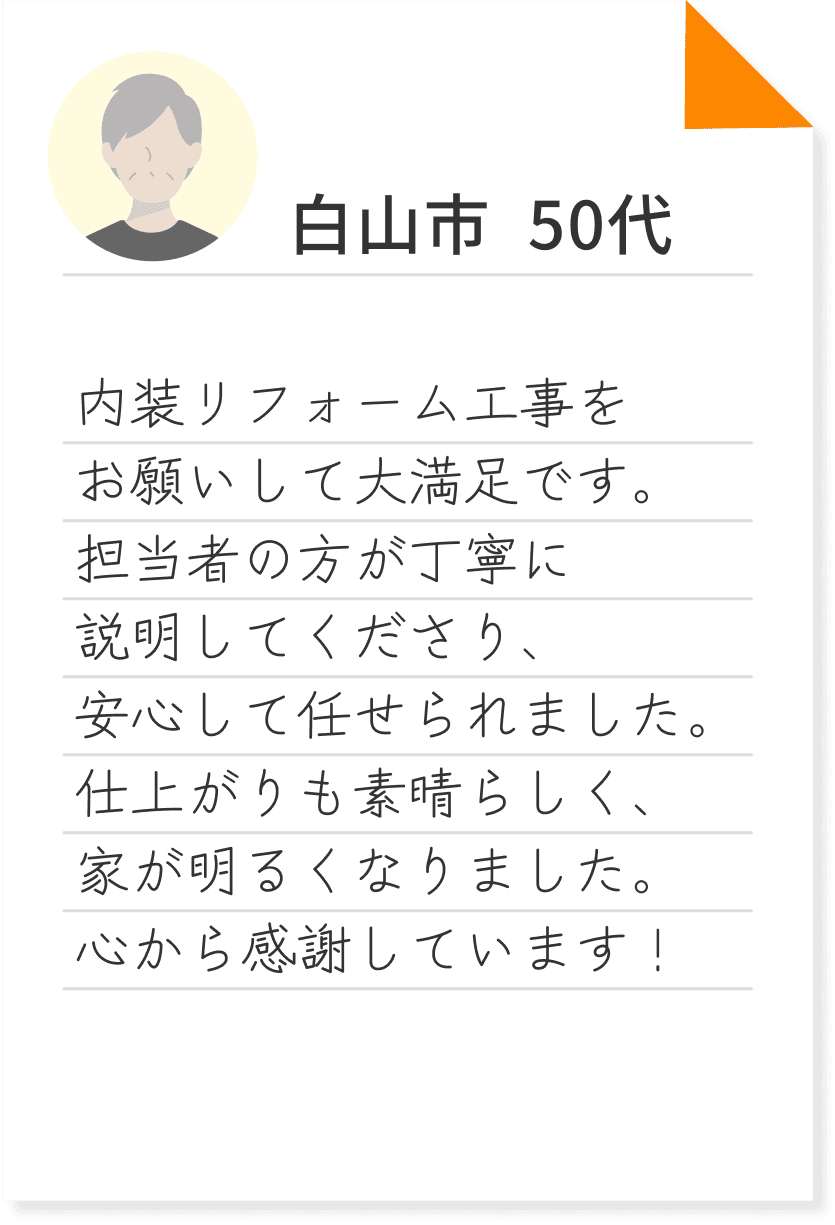 白山市 50代
内装リフォーム工事を
お願いして大満足です。
担当者の方が丁寧に
説明してくださり、
安心して任せられました。
仕上がりも素晴らしく、
家が明るくなりました。
心から感謝しています！